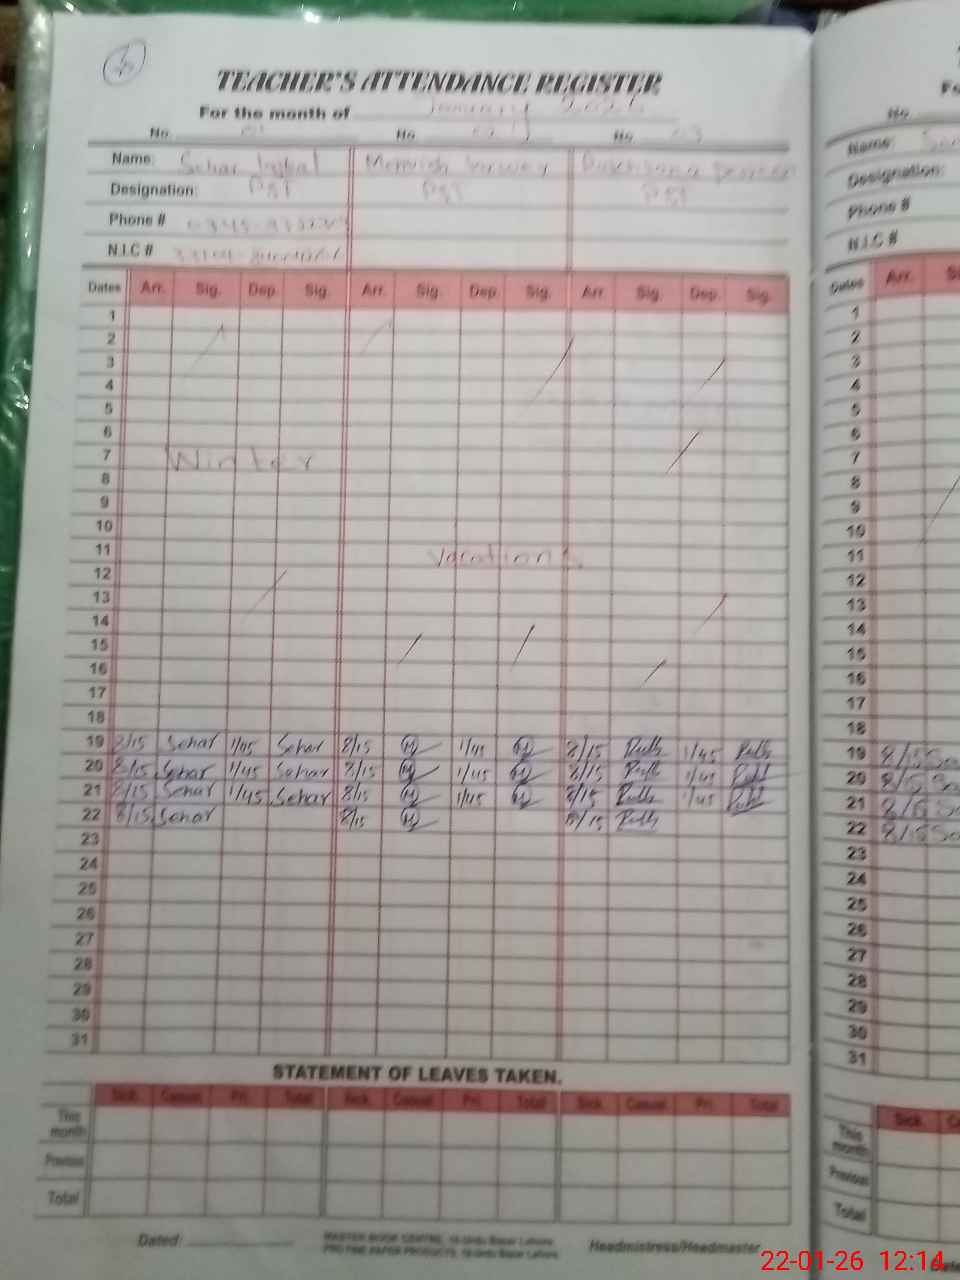 TEACHER'S ATTENDANCE REGISTER
For the month of January 2026
No. 01 No. 02 No. 03
Name: Sehar Iqbal Mehvish
Designation: PST PST PST
Phone #
N.I.C #
Dates Arr. Sig. Dep. Sig. Arr. Sig. Dep. Sig. Arr. Sig. Dep. Sig.
1
2
3
4
5
6
7 Winter
8
9
10
11 Vacations
12
13
14
15
16
17
18
19 8/15 Sehar 1/45 Sehar 8/15 M 1/45 M 8/15 1/45
20 8/15 Sehar 1/45 Sehar 8/15 M 1/45 M 8/15 1/45
21 8/15 Sehar 1/45 Sehar 8/15 M 1/45 M 8/15 1/45
22 8/15 Sehar 8/15 M 8/15
23
24
25
26
27
28
29
30
31
STATEMENT OF LEAVES TAKEN.
Sick. Casual. Pri. Total Sick. Casual. Pri. Total Sick. Casual. Pri. Total
This month
Previous
Total
Dated:
MASTER BOOK CENTRE,
PRO FINE PAPER PRODUCTS,
Headmistress/Headmaster
No.
Name:
Designation:
Phone #
N.I.C #
Dates Arr.
1
2
3
4
5
6
7
8
9
10
11
12
13
14
15
16
17
18
19 8/15
20 8/15
21 8/15
22 8/15
23
24
25
26
27
28
29
30
31
Sick.
This month
Previous
Total
22-01-26 12:14